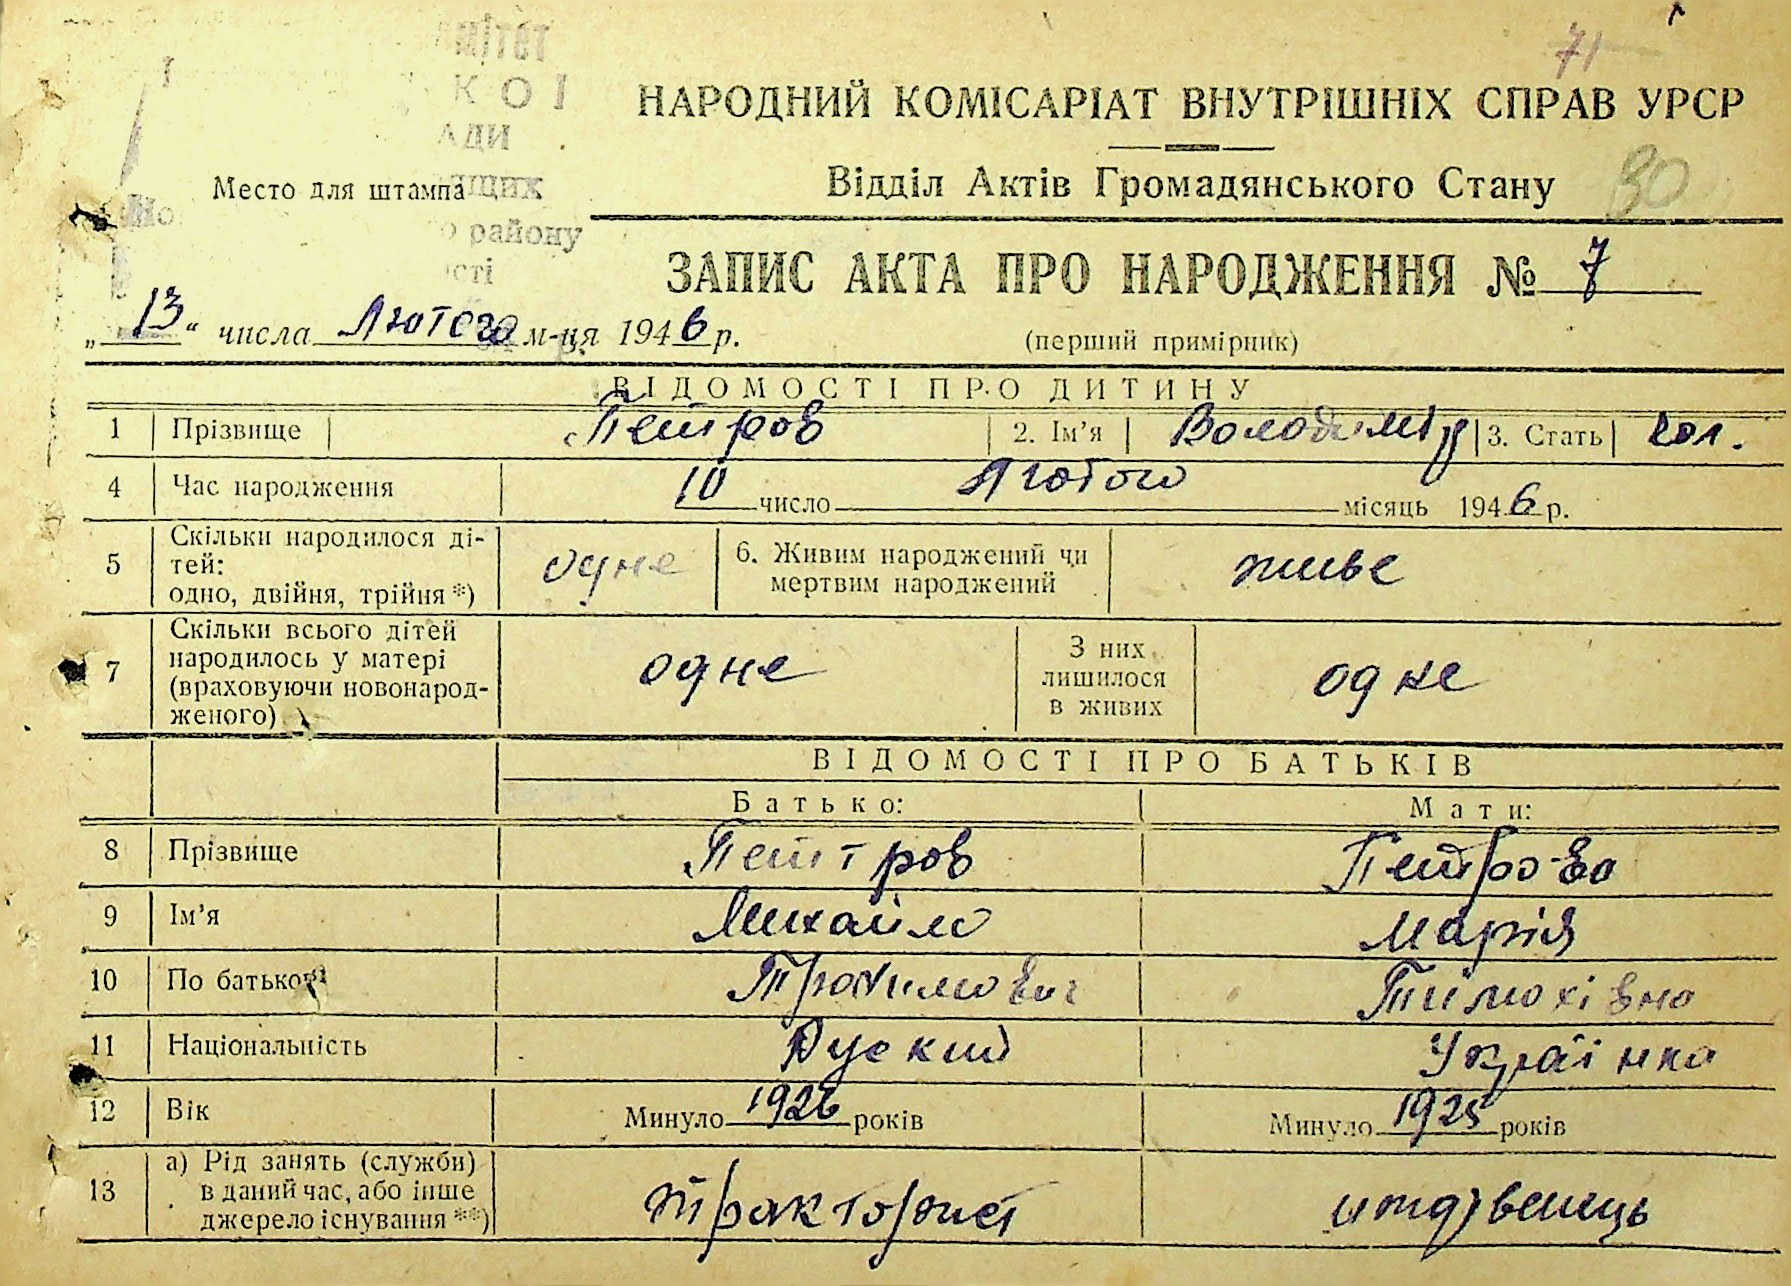 71
мітет
КОІ
АДИ
ящих
Місто для штампа
о району
сті
НАРОДНИЙ КОМІСАРІАТ ВНУТРІШНІХ СПРАВ УРСР
Відділ Актів Громадянського Стану 80
ЗАПИС АКТА ПРО НАРОДЖЕННЯ № 7
„13“ числа Лютого м-ця 1946 р.
(перший примірник)
ВІДОМОСТІ ПРО ДИТИНУ
1 Прізвище Петров 2. Ім’я Володимір 3. Стать чол.
4 Час народження 10 число Лютого місяць 1946 р.
5 Скільки народилося ді-
тей:
одно, двійня, трійня*) одне 6. Живим народжений чи
мертвим народжений живе
7 Скільки всього дітей
народилось у матері
(враховуючи новонарод-
женого) одне З них
лишилося
в живих одне
ВІДОМОСТІ ПРО БАТЬКІВ
Батько: Мати:
8 Прізвище Петров Петрова
9 Ім’я Михайло Марія
10 По батькові Трохимович Тимохівна
11 Національність Руский Українка
12 Вік Минуло 1926 років Минуло 1925 років
13 а) Рід занять (служби)
в даний час, або інше
джерело існування**) тракторист